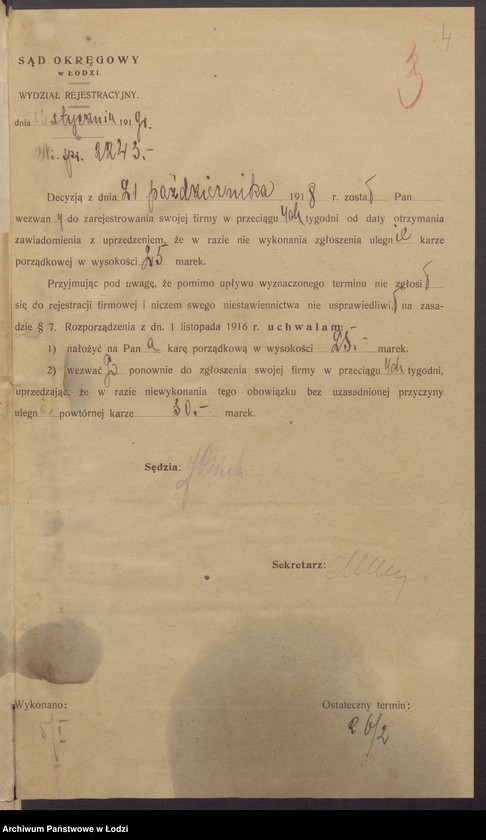 4
3
SĄD OKRĘGOWY
w ŁODZI.
WYDZIAŁ REJESTRACYJNY.
dnia stycznia 1919 r.
Nr. 2243.-
Decyzją z dnia 21 października 1918 r. został Pan
wezwany do zarejestrowania swojej firmy w przeciągu 4ch tygodni od daty otrzymania
zawiadomienia z uprzedzeniem, że w razie nie wykonania zgłoszenia ulegnie karze
porządkowej w wysokości 25 marek.
Przyjmując pod uwagę, że pomimo upływu wyznaczonego terminu nie zgłosił
się do rejestracji firmowej i niczem swego niestawiennictwa nie usprawiedliwił, na zasa-
dzie § 7. Rozporządzenia z dn. 1 listopada 1916 r. uchwalam:
1) nałożyć na Pana karę porządkową w wysokości 25.- marek.
2) wezwać Go ponownie do zgłoszenia swojej firmy w przeciągu 4ch tygodni,
uprzedzając, że w razie niewykonania tego obowiązku bez uzasadnionej przyczyny
ulegn powtórnej karze 30.- marek.
Sędzia:
Sekretarz:
Wykonano:
Ostateczny termin:
26/2
Archiwum Państwowe w Łodzi